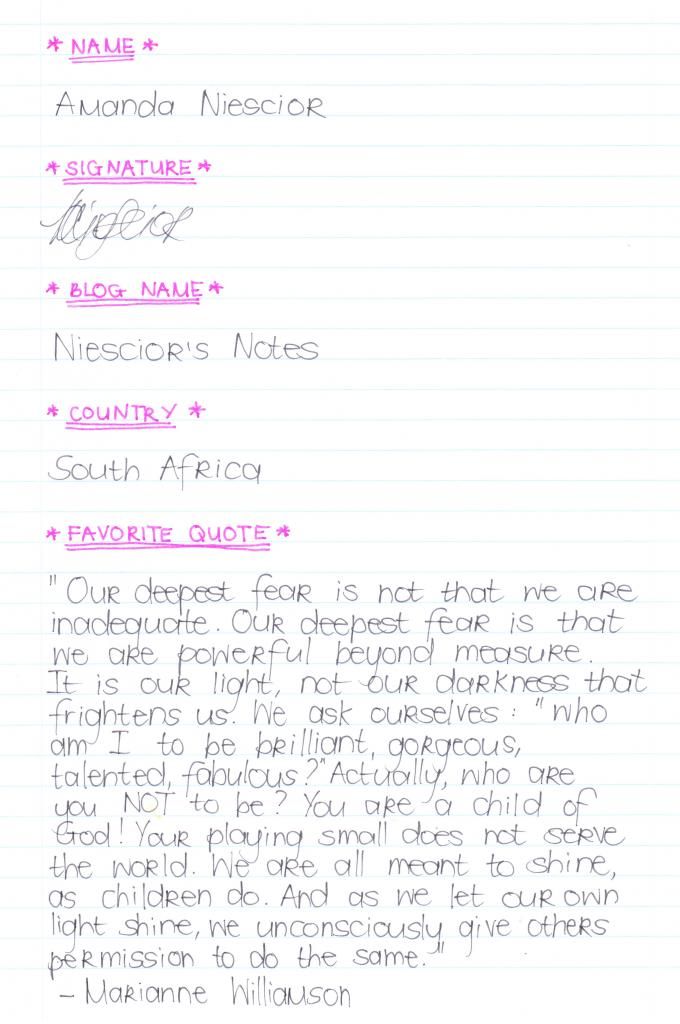 * NAME *
Amanda Niescior
* SIGNATURE *
* BLOG NAME *
Niescior's Notes
* COUNTRY *
South Africa
* FAVORITE QUOTE *
"Our deepest fear is not that we are
inadequate. Our deepest fear is that
we are powerful beyond measure.
It is our light, not our darkness that
frightens us. We ask ourselves: "Who
am I to be brilliant, gorgeous,
talented, fabulous?" Actually, who are
you NOT to be? You are a child of
God! Your playing small does not serve
the world. We are all meant to shine,
as children do. And as we let our own
light shine, we unconsciously give others
permission to do the same."
- Marianne Williamson